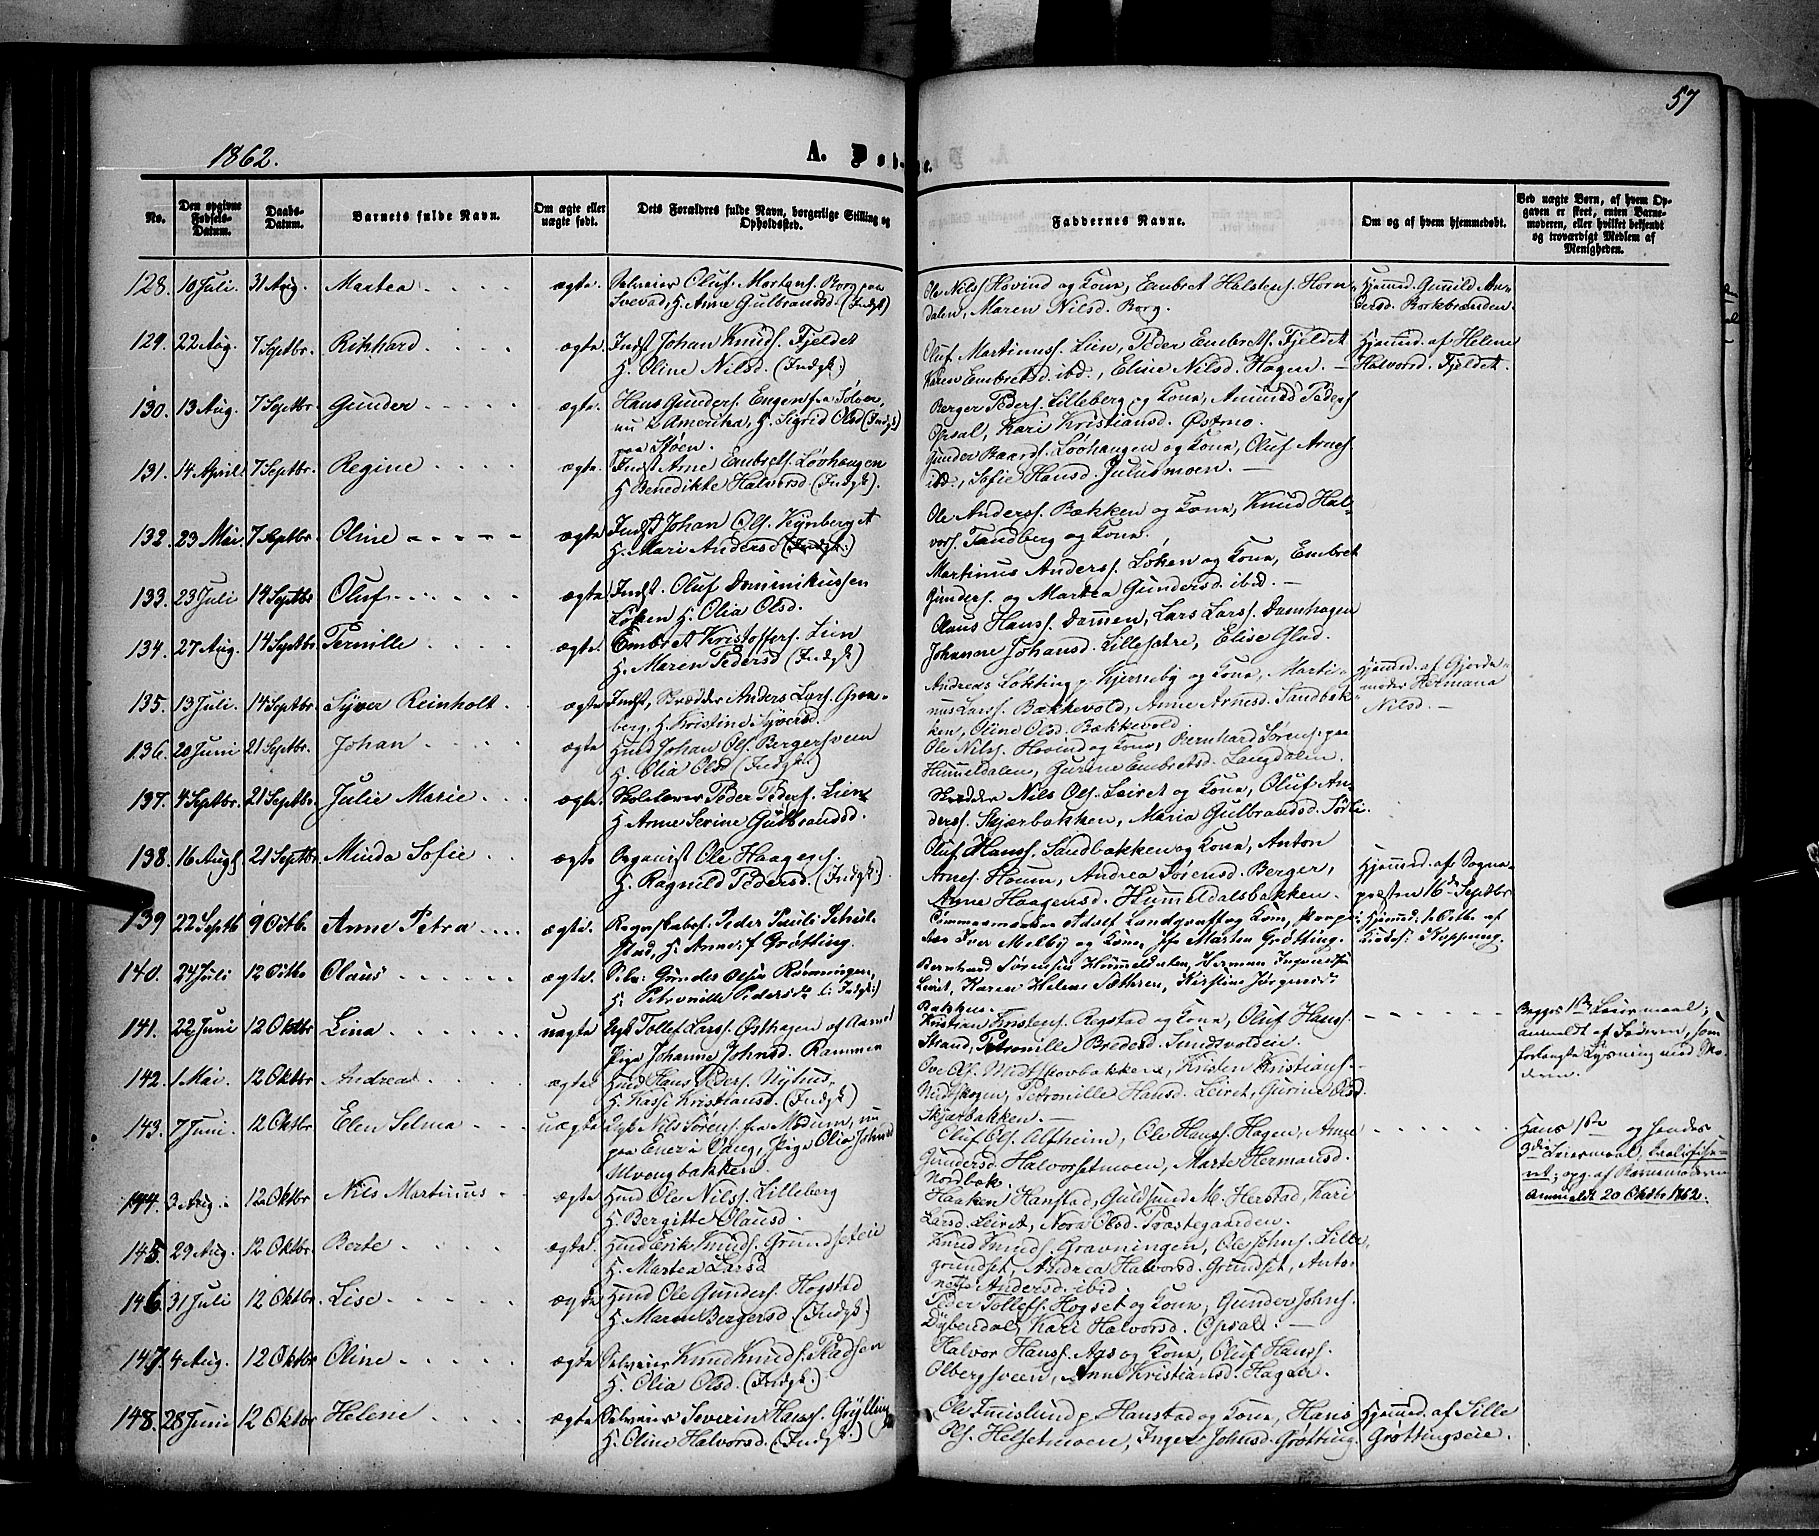 57
1862.
A. Døbte.
No.
Den opgivne Fødsels-Datum.
Daabs-Datum.
Barnets fulde Navn.
Om ægte eller uægte født.
Dets Forældres fulde Navn, borgerlige Stilling og Opholdssted.
Faddernes Navne.
Om og af hvem hjemmedøbt.
Ved uægte Børn, af hvem Opgaven er skeet, enten Barnemoderen, eller hvilket bekjendt og troværdigt Medlem af Menigheden.
128. 10 Juli. 31 Aug. Martea ægte. Selveier Oluf Mortens. Borg paa
Svevad, H. Anne Gulbrandsd. (Indgk)
Ole Nils Hovind og Kone, Embret Halstens. Horn-
dalen, Maren Nilsd. Borg.
Hjemmed. Gunild An-
dersd. Borkebrænden
129. 22 Aug. 7 Septbr. Rikhard ægte. Indst Johan Knuds. Fjeldet
H. Oline Nilsd. (Indgk.)
Oluf Martinuss. Lien, Peder Embrets. Fjeldet
Karen Embretsd. ibd., Eline Nilsd. Hagen.
Hjemmed. af Helene
Halvorsd. Fjeldet.
130. 13 Aug. 7 Septbr. Gunder ægte. Hans Gunders. Engen fra Solør,
nu i Amerika, H. Sigrid Olsd (Indgk)
paa Støen.
Berger Peders. Lilleberg og Kone, Amund Peders
Opsal, Kari Kristiansd. Østmo.
131. 14 April. 7 Septbr. Regine ægte. Indst Arne Embrets. Løvhaugen
H. Benedikte Halvorsd (Indgk).
Gunder Baards. Løvhaugen og Kone, Oluf Arnes.
ibd., Sofie Hansd. Julusmoen.
132. 23 Mai. 7 Septbr. Oline ægte. Indst Johan Ols. Kynberget
H. Mari Andersd (Indgk.)
Ole Anderss. Bækken og Kone, Knud Hal-
vors. Tandberg og Kone.
133. 23 Juli 14 Septbr. Oluf ægte Indst. Oluf Dominikussen
Løken H. Olia Olsd.
Martinus Anderss. Løken og Kone, Embret
Gunders. og Martea Gundersd. ibid.
134. 27 Aug. 14 Septbr. Pernille ægte. Embret Kristoffers. Lien
H. Maren Pedersd (Indgk)
Claus Hanss. Dammen, Lars Larss. Damhagen
Johanne Johansd. Lillesætre, Elise Glad.
135. 13 Juli. 14 Septbr. Syver Reinholt ægte Indst, Skrædder Anders Lars. Gron-
berg, H. Kristine Syversd.
Andreas Løkting p. Kjerneby og Kone, Marti-
nus Larss. Bækkevold, Anne Arnesd. Sandbak-
ken, Oline Olsd. Bækkevold.
Hjemmed. af Gjorde-
moder Hermana
Nilsd.
136. 20 Juni 21 Septbr. Johan ægte Husd Johan Ols. Bergersveen
H. Olia Olsd (Indgk.)
Ole Nilss. Hovind og Kone, Bernhard Sørens. paa
Hummeldalen, Gurine Embretsd. Langdalen.
137. 4 Septbr. 21 Septbr. Julie Marie ægte. Skolelærer Peder Peders. Lien
H. Anne Serine Gulbrandsd.
Skrædder Nils Ols. Leiret og Kone, Oluf An-
derss. Skjærbakken, Maria Gulbrandsd. Sørli
138. 16 Aug. 21 Septbr. Minda Sofie ægte Organist Ole Haagens.
H. Ragnild Pedersd. (Indgk.)
Oluf Hanss. Sandbakken og Kone, Anton
Arnes. Houm, Andrea Sørensd. Berger,
Anne Haagensd. Hummeldalsbakken.
Hjemmed. af Sogne-
præsten 16de Septbr
139 22 Septb 9 Octbr. Anne Petra ægte. Regnskabsf. Peder Pauli Strid-
stad, H. Anne f. Grøtting.
Tømmermærker Adolf Landgraff og Kone,
Iver Melby og Kone, Martea Grøtting.
Hjemmed. 1 Octbr af
Kopping.
140. 24 Juli 12 Octbr Claus ægte. Selv. Gunder Olsen Rønningen,
H. Petronille Pedersdr (: Indgk:)
Bernhard Sørensen Hummeldalen, Herman Ingvaldsen
Leiret, Karen Helene Sætteren, Kirstine Jørgensd.
141. 22 Juni 12 Oktbr Lina uægte Ugk Tollef Larss. Østhagen af Aamot
Pige Johanne Johnsd. Rammen
Kristian Kristens. Rogstad og Kone, Oluf Hanss.
Strand, Petronille Bredesd. Sundsvoldeie.
Begges 1ste Leiermaal;
anmeldt af Faderen, som
forlangte Lysning med Mo-
deren.
142. 1 Mai. 12 Oktbr Andrea ægte Husd Hans Peders. Nylund,
H. Kasse Kristiansd. (Indgk)
Ove Ols. Midtskovbakken, Kristen Kristians-
Midtskogen, Petronille Hansd. Leiret, Gurine Olsd.
Skjærbakken
143. 7 Juni. 12 Oktbr Elen Selma uægte Ugk Nils Sørens. fra Modum, nu
paa Ener i Vang, Pige Olia Johnsd
Ulvengbakken
Oluf Ols. Alfheim, Ole Hanss. Hagen, Anne
Gundersd. Halvorsetmoen, Marte Hermansd.
Nordbæk
Hans 1ste og hendes
3die Leiermaal, kvalificeret; opg. af Barnemoderen
Anmeldt 20 Oktbr 1862.
144. 3 Aug. 12 Oktbr Nils Martinus ægte Husd Ole Nilss. Lilleberg
H. Bergitte Olausd.
Haaken Hanstad, Guldsmed M. Herstad, Kari
Larsd. Leiret, Nora Olsd. Præstegaarden.
145. 29 Aug. 12 Oktbr. Berte ægte. Husd Erik Knuds. Grundseteie
H. Martea Larsd
Knud Knuds. Gravningen, Ole Johns. Lille-
grundset, Andrea Halvorsd. Grundset, Anto-
nette Andersd. ibid.
146. 31 Juli 12 Oktbr. Lise ægte Husd Ole Gunders. Hogstad
H. Maren Bergersd (Indgk)
Peder Tollefs. Hogset og Kone, Gunder Johns.
Dybendal, Kari Halvorsd. Opsal.
147. 4 Aug. 12 Oktbr Oline ægte Selveier Knud Knuds. Stadsen
H. Olia Olsd. (Indgk.)
Halvor Hanss. Aas og Kone, Oluf Hanss.
Olbergsveen, Anne Kristiansd. Hagen.
148. 28 Juni 12 Oktbr Helene ægte Selveier Severin Hanss. Grylling
H. Oline Halvorsd. (Indgk.)
Ole Emislund p. Hanstad og Kone, Hans
Ols. Helsetmoen, Inger Johnsd. Grøtting.
Hjemmed. af Sille
Grøttingseie.